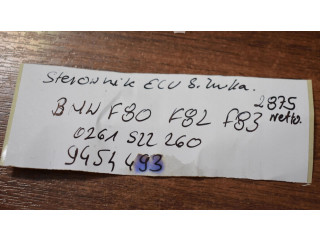 Sterownik ECU Silnika.
BMW F80 F82 F83
2875
netto.
0261 S22 260
9454493